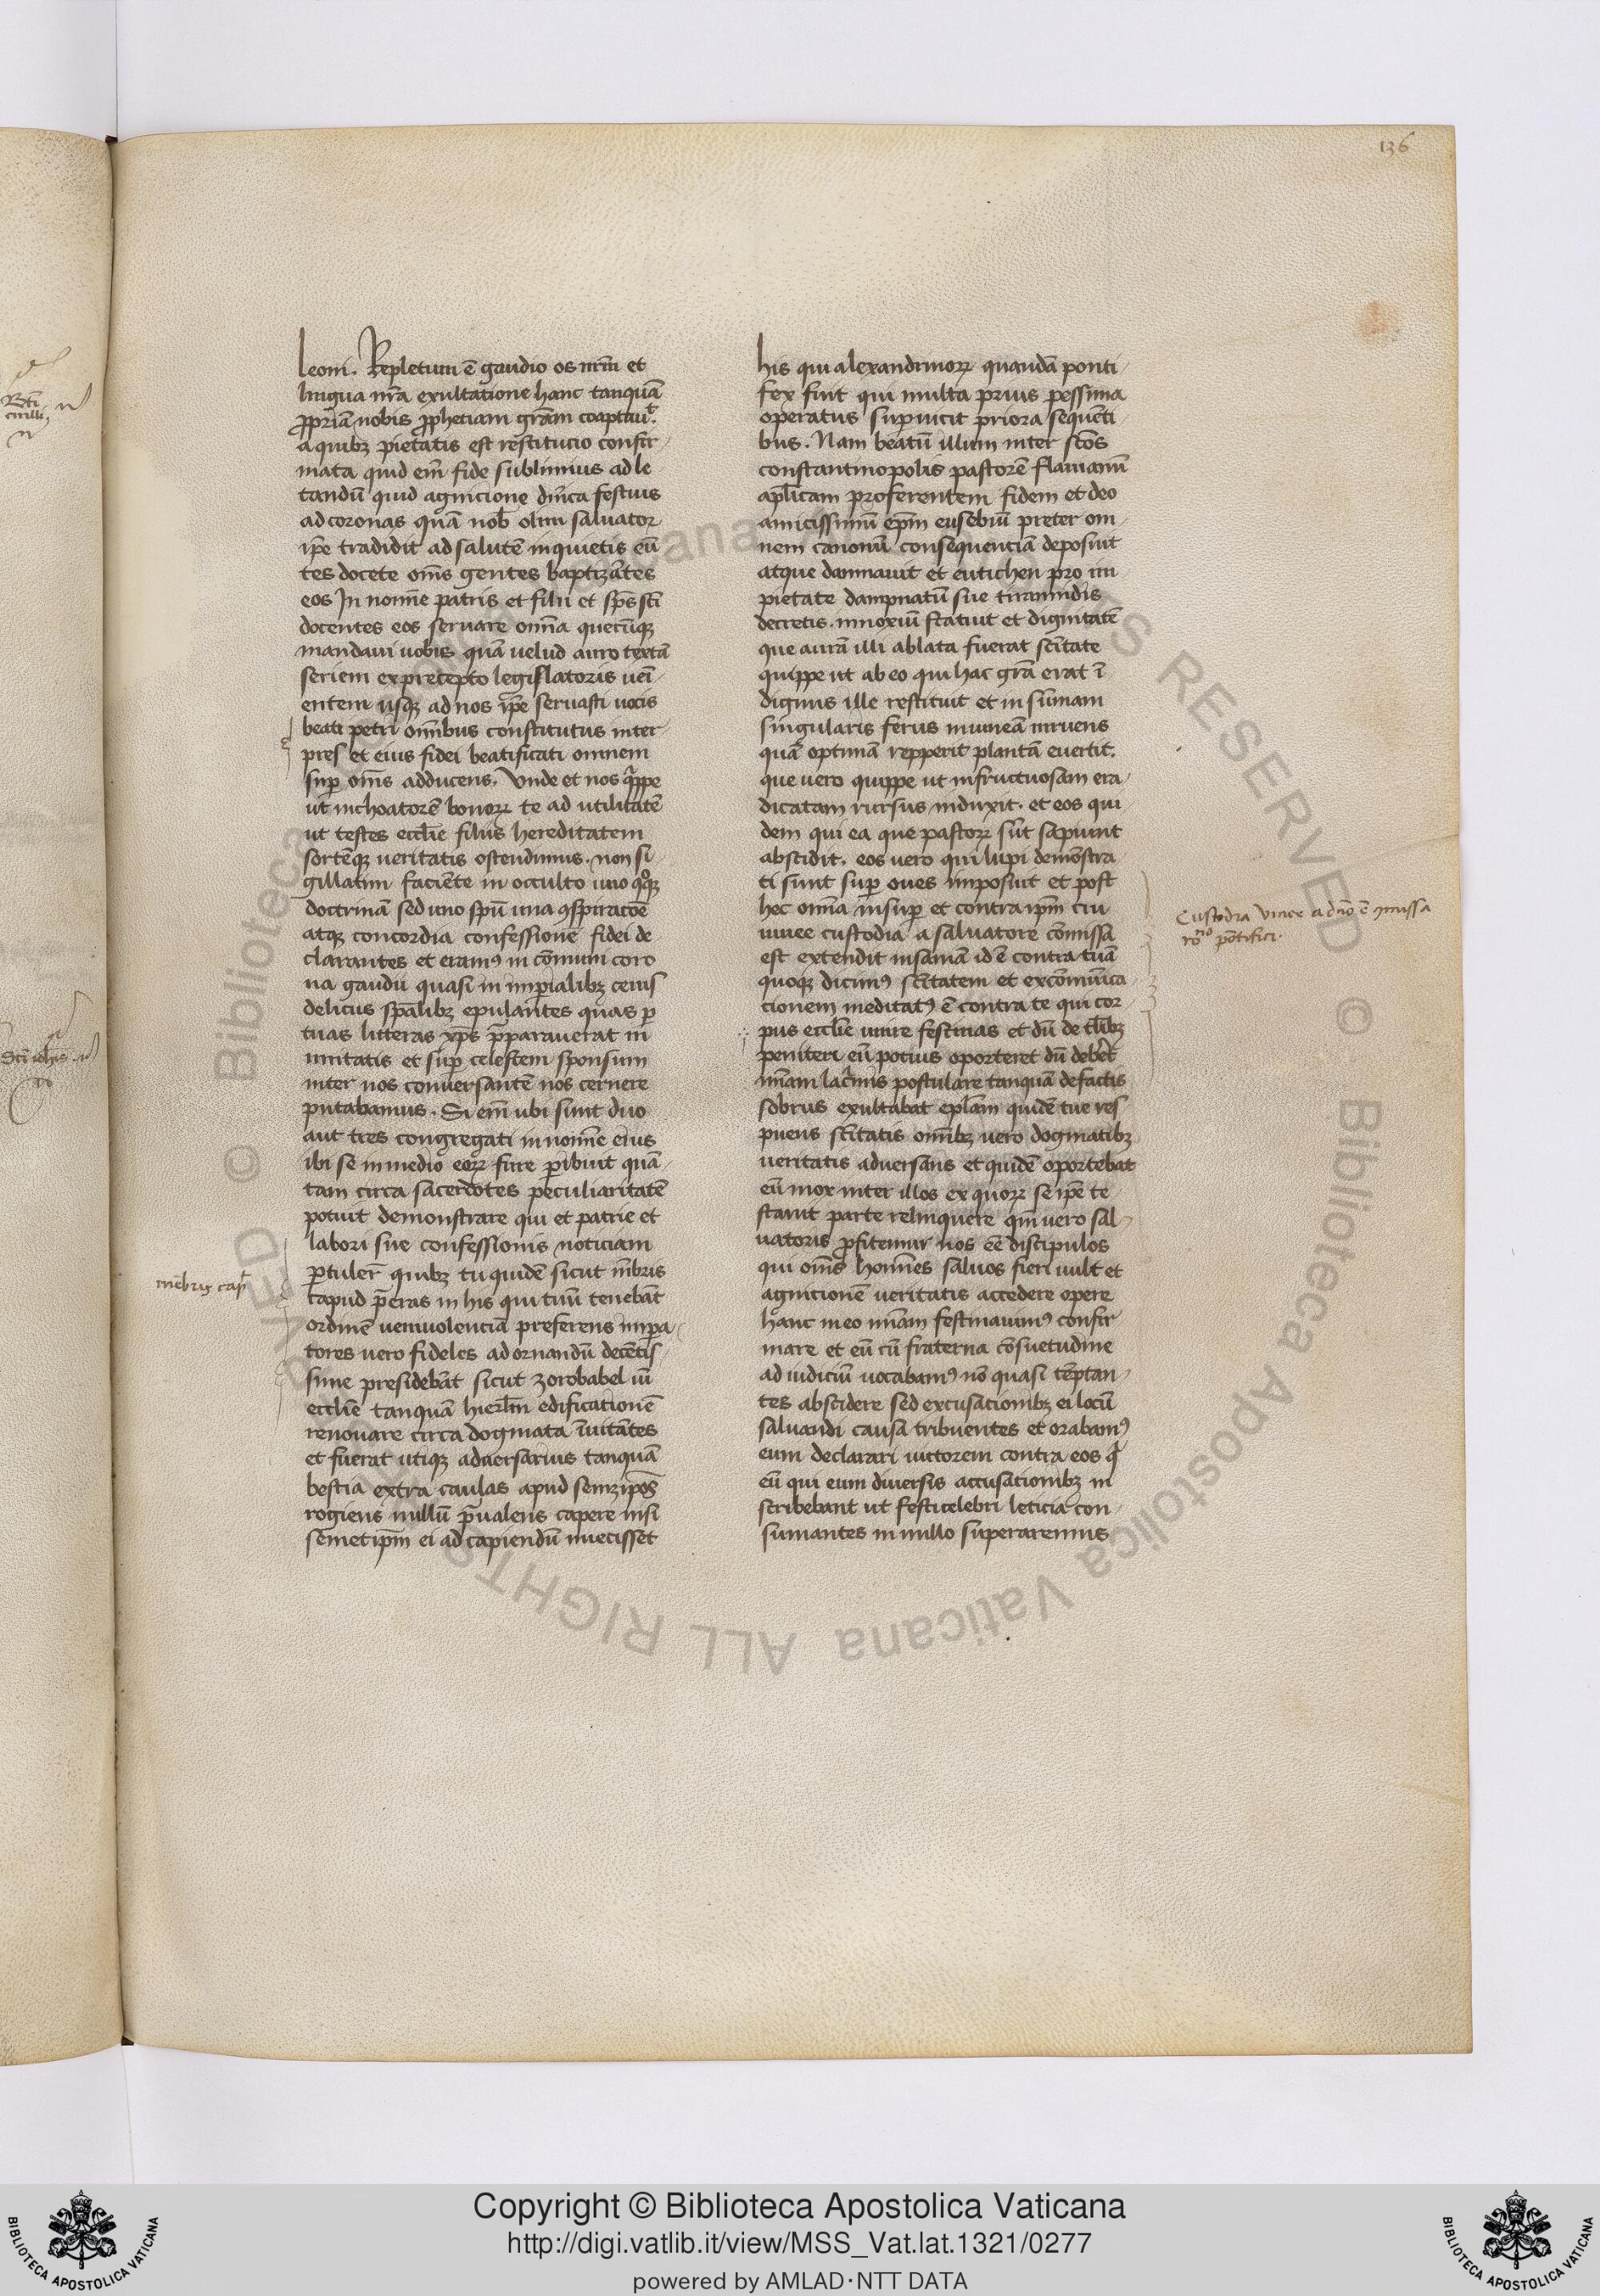 136
leoni. Repletum ē gaudio os nr̄m et
lingua nr̄a exultatione hanc tanquā
ꝓpriā nobis ꝓphetiam grām coaptauit.
a quibꝫ pietatis est restitucio confir-
mata quid em̄ fide sublimius ad le-
tandū quid agnicione dn̄ica festius
ad coronas quā nob̄ olim saluator
ip̄e tradidit ad salutē inquietis eū
tes docete om̄s gentes baptizātes
eos In nomīe patris et filii et sp̄s sc̄i
docentes eos seruare om̄ia quecūqꝫ
mandaui uobis quā uelud auro textā
seriem ex precepto legislatoris ueī-
entem usqꝫ ad nos ip̄e seruasti uocis
beati petri om̄ibus constitutus inter-
pres et eius fidei beatificati omnem
suꝑ om̄s adducens. Vnde et nos quippe
ut inchoatorē bonoꝝ te ad utilitatē
ut testes eccl̄ie filiis hereditatem
sortēqꝫ ueritatis ostendimus. non si-
gillatim faciēte in occulto uno qoqꝫ
doctrinā sed uno spū una ꝯspiracōe
atqꝫ concordia confessionē fidei de
clarantes et eramꝰ in cōmuni coro
na gaudii quasi in imꝑialibꝫ ceius
deliciis sp̄alibꝫ epulantes quas ꝑ
tuas litteras xp̄s p̄parauerat in
unitatis et suꝑ celestem sponsum
inter nos conuersantē nos cernere
putabamus. Si em̄ ubi sunt duo
aut tres congregati in nomīe eius
ibi se in medio eoꝝ fore ꝑibuit quā-
tam circa sacerdotes peculiaritatē
potuit demonstrare qui et patrie et
labori sue confessionis noticiam
ꝑtuler̄ quibꝫ tu quidē sicut mēbris
capud p̄eras in his qui tuū tenebāt
ordinē ueniuolenciā preferens imꝑa-
tores uero fideles ad ornandū decētis-
sime presidebāt sicut zorobabel iū
eccl̄ie tanquā hierl̄m edificationē
renouare circa dogmata īuitātes
et fuerat utiqꝫ aduersarius tanquā
bestia extra caulas apud semꝫipōs
rogiens nullū p̄ualens capere nisi
semetip̄m ei ad capiendū iniecisset
his qui alexandrinoꝝ quandā ponti-
fex fuit qui multa prius pessima
operatus suꝑuicit priora sequēti-
bus. Nam beatū illum inter sc̄os
constantinopolis pastorē flauianū
apl̄icam proferentem fidem et deo
amicissimū ep̄m eusebiū preter om-
nem canonū consequenciā deposuit
atque damnauit et eutichen pro im-
pietate dampnatū sue tirannidis
decretis. innoxiū statuit et dignitatē
que aurā illi ablata fuerat sc̄itate
quippe ut ab eo qui hac grā erat ī
dignus ille restituit et in sūmam
singularis ferus in uineā irruens
quā optimā repperit plantā euertit.
que uero quippe ut infructuosam era-
dicatam rursus induxit. et eos qui
dem qui ea que pastoꝝ sūt sapiunt
abscidit. eos uero qui lupi demōstra
ti sunt suꝑ oues imposuit et post
hec om̄ia insuꝑ et contra ip̄m cui
uinee custodia a saluatore cōmissa
est extendit insaniā id ē contra tuā
quoqꝫ dicimꝰ sc̄itatem et excōmunica-
cionem meditatꝰ ē contra te qui cor-
pus eccl̄ie unire festinas et dū de tl̄ibꝫ
peniteri eū potius oporteret dū deber̄t
mīam lac̄mis postulare tanquā de factis
sobrus exultabat epl̄am quidē tue res-
puens sc̄itatis om̄ibꝫ uero dogmatibꝫ
ueritatis aduersans et quidē oportebat
eū mox inter illos ex quoꝝ se ip̄e te
stauit parte relinquere qm̄ uero sal-
uatoris ꝓfitemur nos eē discipulos
qui om̄s homīes saluos fieri uult et
agnitionē ueritatis accedere opere
hanc in eo mīam festinauimꝰ confir
mare et eū cū fraterna cōsuetudine
ad iudiciū uocabamꝰ nō quasi tēptan-
tes abscidere sed excusationibꝫ ei locū
saluandi causa tribuentes et orabamꝰ
eum declarari uictorem contra eos q̄
eū qui eum diuersis accusationibꝫ in
scribebant ut festi celebri leticia con-
sumantes in nullo superaremus
mēbris cap̄
Custodia vinee a dn̄o ē ꝯmissa
ro^no pōtifici.
Copyright © Biblioteca Apostolica Vaticana
http://digi.vatlib.it/view/MSS_Vat.lat.1321/0277
powered by AMLAD·NTT DATA
BIBLIOTECA APOSTOLICA VATICANA
BIBLIOTECA APOSTOLICA VATICANA